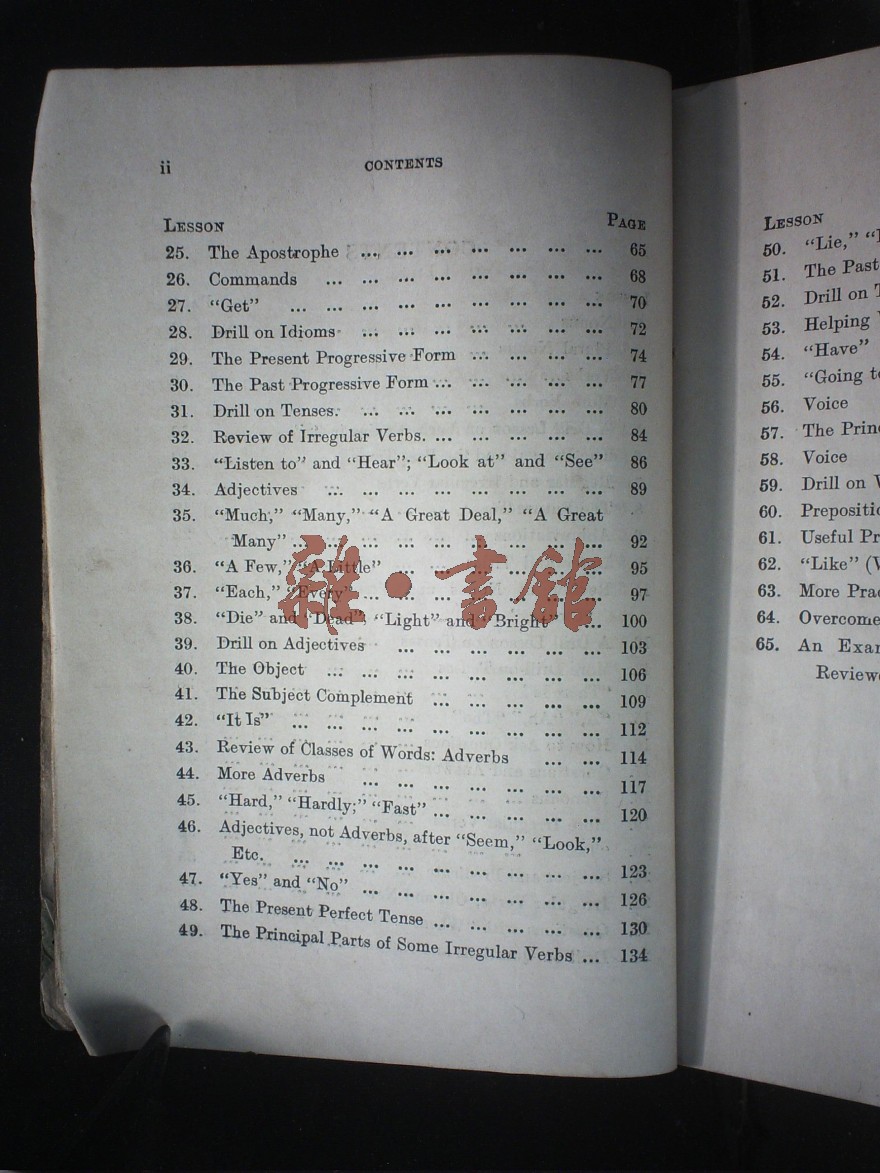 ii CONTENTS
LESSON PAGE
25. The Apostrophe ... ... ... ... ... ... ... 65
26. Commands ... ... ... ... ... ... ... ... 68
27. “Get” ... ... ... ... ... ... ... ... ... 70
28. Drill on Idioms ... ... ... ... ... ... ... 72
29. The Present Progressive Form ... ... ... ... 74
30. The Past Progressive Form ... ... ... ... ... 77
31. Drill on Tenses. ... ... ... ... ... ... ... 80
32. Review of Irregular Verbs. ... ... ... ... ... 84
33. “Listen to” and “Hear”; “Look at” and “See” 86
34. Adjectives ... ... ... ... ... ... ... ... 89
35. “Much,” “Many,” “A Great Deal,” “A Great
Many” ... ... ... ... ... ... ... ... ... 92
36. “A Few,” “A Little” ... ... ... ... ... ... 95
37. “Each,” “Every” ... ... ... ... ... ... ... 97
38. “Die” and “Dead”; “Light” and “Bright” ... 100
39. Drill on Adjectives ... ... ... ... ... ... 103
40. The Object ... ... ... ... ... ... ... ... 106
41. The Subject Complement ... ... ... ... ... 109
42. “It Is” ... ... ... ... ... ... ... ... ... 112
43. Review of Classes of Words: Adverbs ... ... 114
44. More Adverbs ... ... ... ... ... ... ... 117
45. “Hard,” “Hardly;” “Fast” ... ... ... ... ... 120
46. Adjectives, not Adverbs, after “Seem,” “Look,”
Etc. ... ... ... ... ... ... ... ... ... 123
47. “Yes” and “No” ... ... ... ... ... ... ... 126
48. The Present Perfect Tense ... ... ... ... ... 130
49. The Principal Parts of Some Irregular Verbs ... 134
雜·書館
LESSON
50. “Lie,”
51. The Past
52. Drill on
53. Helping
54. “Have”
55. “Going
56. Voice
57. The
58. Voice
59. Drill on
60.
61. Useful
62. “Like”
63. More
64. Overcome
65. An